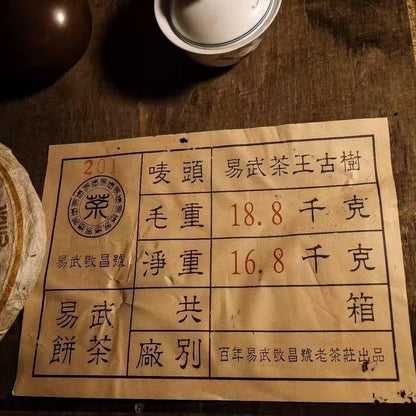 201
茶
易武敬昌號
易武
餅茶
唛頭
易武茶王古樹
毛重
18.8 千克
淨重
16.8 千克
共
箱
廠別
百年易武敬昌號老茶莊出品